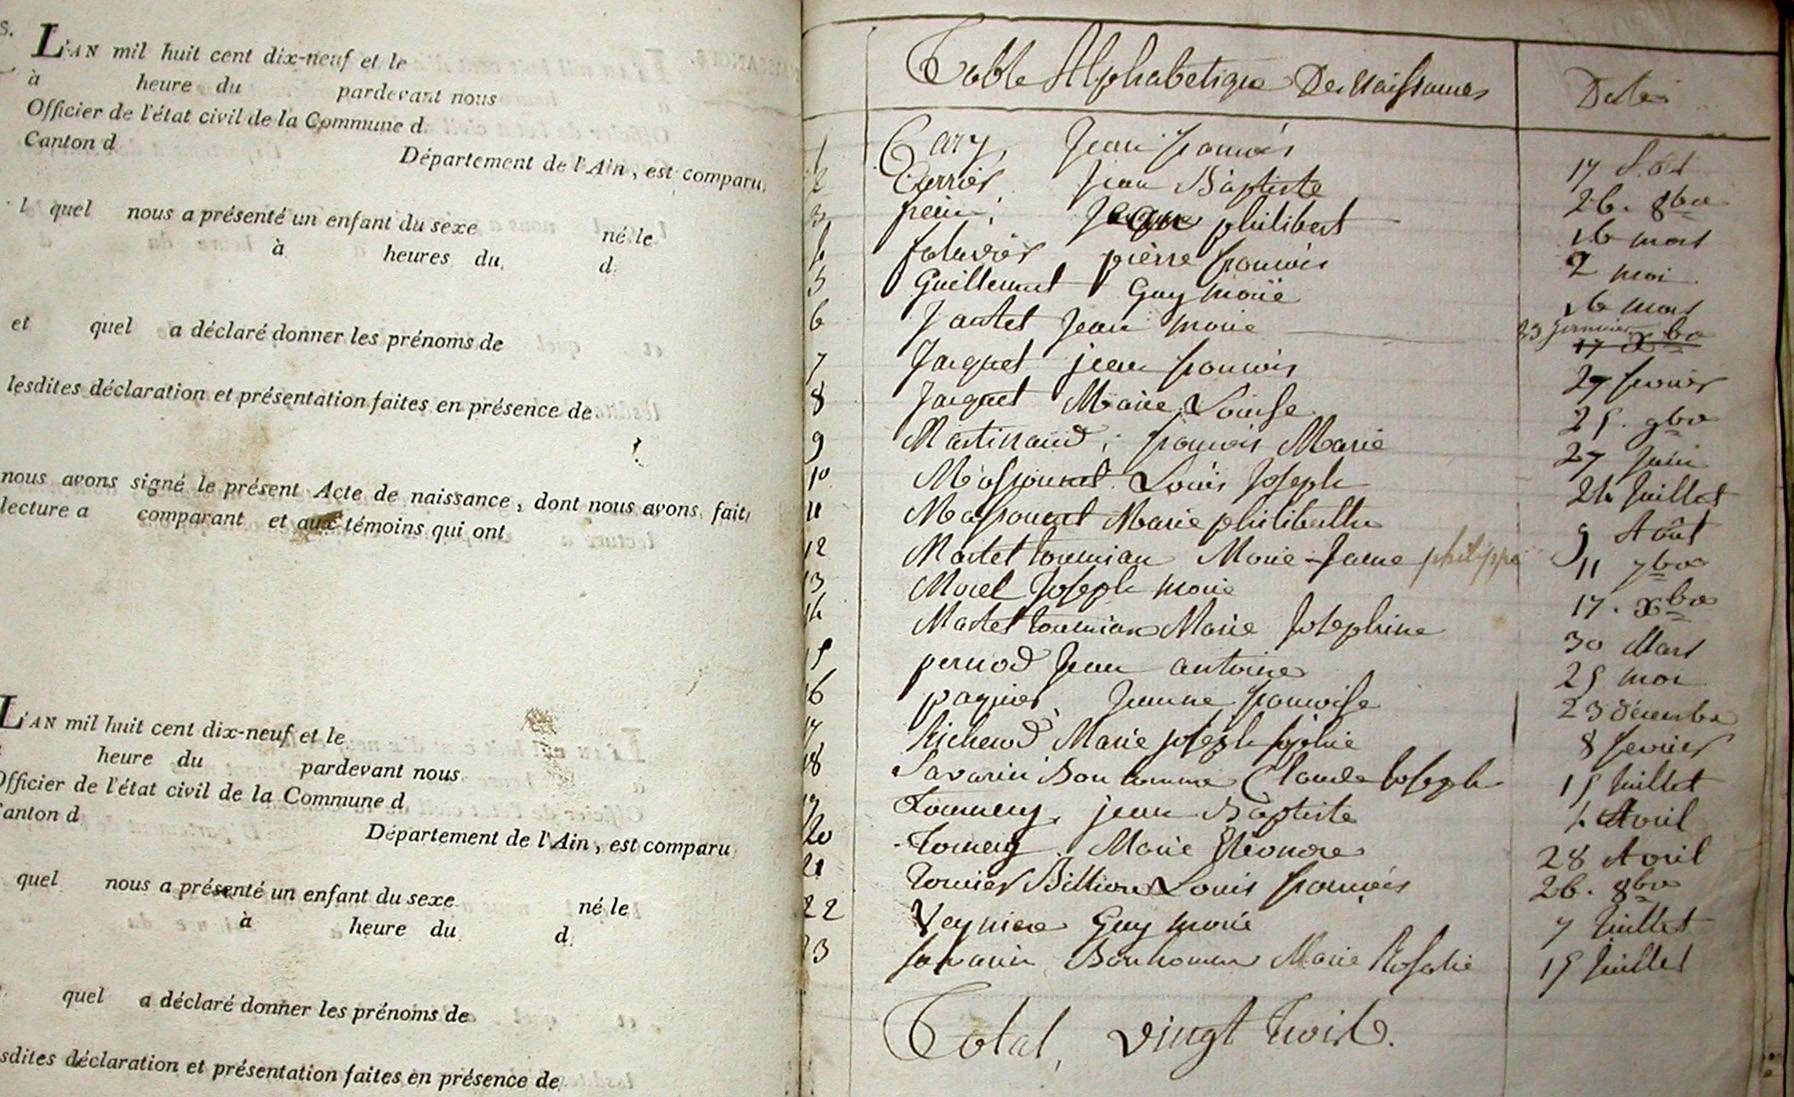 s.
L'AN mil huit cent dix-neuf et le
à heure du pardevant nous
Officier de l'état civil de la Commune d
Canton d Département de l'Ain, est comparu
l quel nous a présenté un enfant du sexe né le
à heures du d
et quel a déclaré donner les prénoms de
lesdites déclaration et présentation faites en présence de
nous avons signé le présent Acte de naissance, dont nous avons fait
lecture a comparant et aux témoins qui ont
L'AN mil huit cent dix-neuf et le
heure du pardevant nous
Officier de l'état civil de la Commune d
anton d Département de l'Ain, est comparu
quel nous a présenté un enfant du sexe né le
à heure du d
quel a déclaré donner les prénoms de
sdites déclaration et présentation faites en présence de
Table Alphabetique Des naissances Dates
1 Cary, Jean françois 17 Août
2 Jean Baptiste 26. 8bre
3 philibert 16 mars
4 pierre françois 2 mai
5 Guillermet Guy marie 16 mars
6 Jantet Jean marie 23 janvier 17 Xbre
7 Jacquet jean françois 27 fevrier
8 Jacquet Marie Louise 25. 9bre
9 Martinand, françois Marie 27 Juin
10 Massonnet Louis Joseph 24 Juillet
11 Massonnet Marie philiberthe 9 Août
12 Martet tournian Marie Jeanne philippe 11 7bre
13 Morel Joseph marie 17. Xbre
14 Martet tournian Marie Josephine 30 Mars
15 pernod Jean antoine 25 mai
16 paquier, Jeanne françoise 23 décembre
17 Richerod Marie joseph sophie 8 fevrier
18 Savarin Bonhomme Claude Joseph 15 Juillet
19 Tournery, jean Baptiste 4 Avril
20 Tournery Marie Eléonore 28 Avril
21 Tornier Billion Louis françois 26. 8bre
22 Veyniere Guy marie 7 Juillet
23 Savarin Bonhomme Marie Rosalie 15 Juillet
Total, vingt trois.